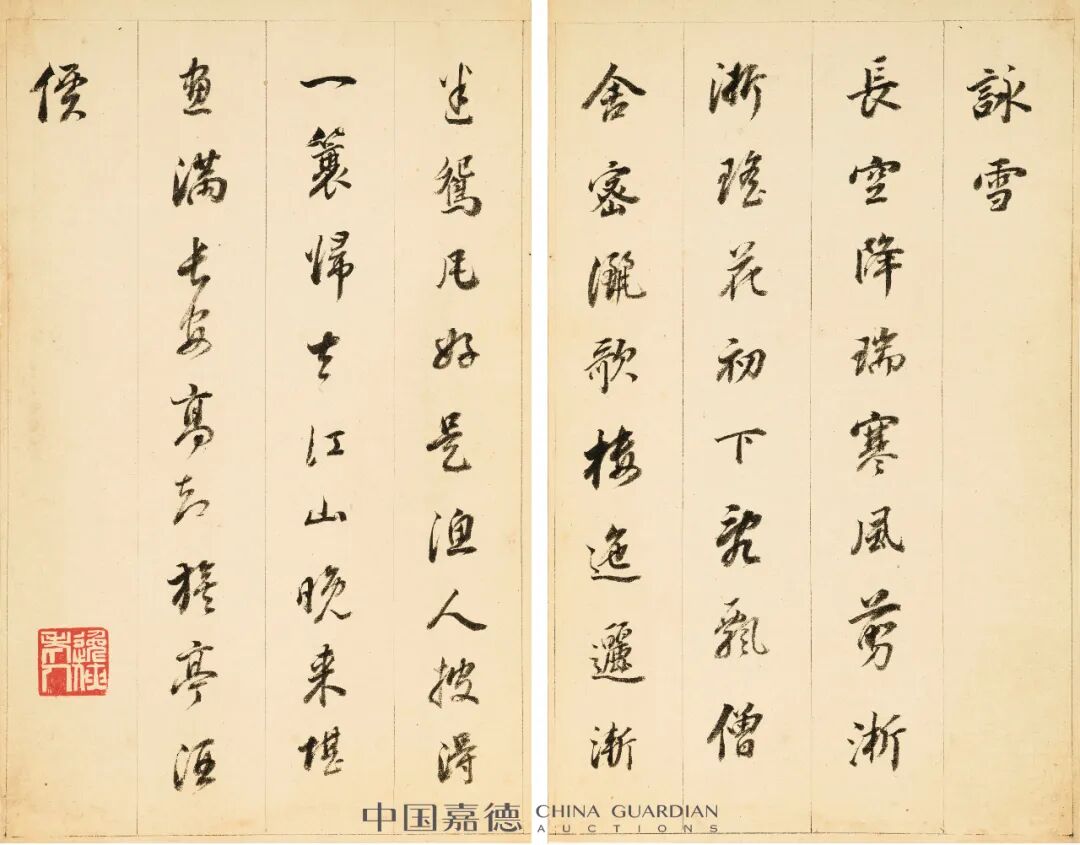 詠雪
長空降瑞寒風剪淅
淅瑤花初下亂飄僧
舍密灑歌樓迤邐漸
迷鴛瓦好是漁人披得
一簑歸去江山晚来堪
畫滿長安高却旗亭酒
價
中国嘉德 CHINA GUARDIAN
AUCTIONS